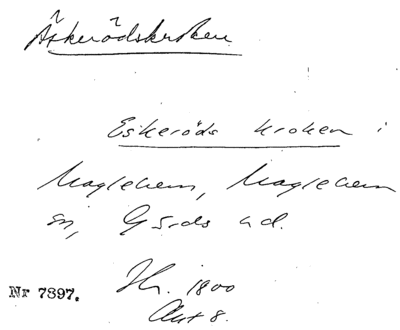 Äskerödskroken
Eskeröds kroken i
Maglehem, Maglehem
sn, Gärds hd.
Nr 7897.
1800
Akt 8.